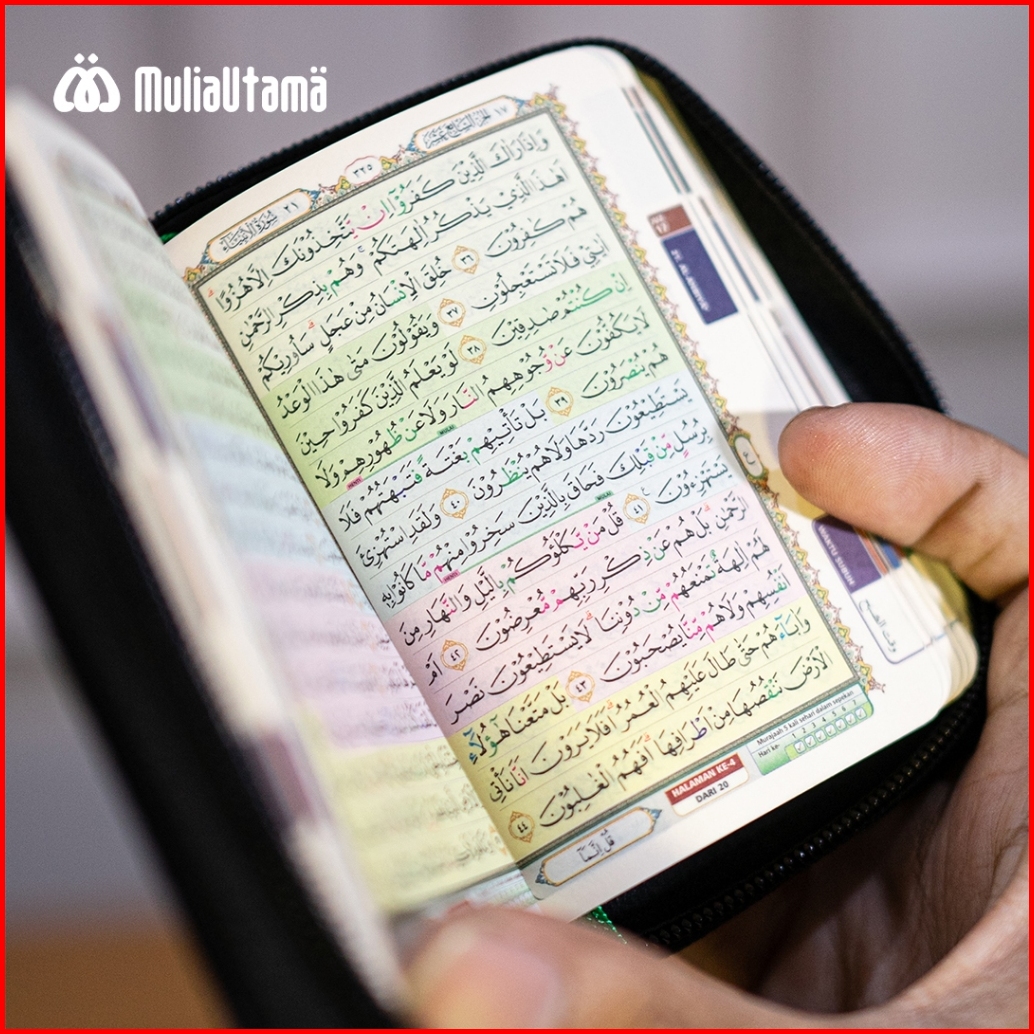 MuliaUtamä
الجزء السابع عشر ١٧
٣٢٥
سورة الانبياء ٢١
وَاِذَا رَاٰكَ الَّذِيْنَ كَفَرُوْٓا اِنْ يَّتَّخِذُوْنَكَ اِلَّا هُزُوًاۗ
اَهٰذَا الَّذِيْ يَذْكُرُ اٰلِهَتَكُمْۚ وَهُمْ بِذِكْرِ الرَّحْمٰنِ
هُمْ كٰفِرُوْنَ ٣٦ خُلِقَ الْاِنْسَانُ مِنْ عَجَلٍۗ سَاُورِيْكُمْ
اٰيٰتِيْ فَلَا تَسْتَعْجِلُوْنِ ٣٧ وَيَقُوْلُوْنَ مَتٰى هٰذَا الْوَعْدُ
اِنْ كُنْتُمْ صٰدِقِيْنَ ٣٨ لَوْ يَعْلَمُ الَّذِيْنَ كَفَرُوْا حِيْنَ
لَا يَكُفُّوْنَ عَنْ وُّجُوْهِهِمُ النَّارَ وَلَا عَنْ ظُهُوْرِهِمْ وَلَا
هُمْ يُنْصَرُوْنَ ٣٩ بَلْ تَأْتِيْهِمْ بَغْتَةً فَتَبْهَتُهُمْ فَلَا
يَسْتَطِيْعُوْنَ رَدَّهَا وَلَا هُمْ يُنْظَرُوْنَ ٤٠ وَلَقَدِ اسْتُهْزِئَ
بِرُسُلٍ مِّنْ قَبْلِكَ فَحَاقَ بِالَّذِيْنَ سَخِرُوْا مِنْهُمْ مَّا كَانُوْا بِهٖ
يَسْتَهْزِءُوْنَ ٤١ قُلْ مَنْ يَّكْلَؤُكُمْ بِالَّيْلِ وَالنَّهَارِ مِنَ
الرَّحْمٰنِۗ بَلْ هُمْ عَنْ ذِكْرِ رَبِّهِمْ مُّعْرِضُوْنَ ٤٢ اَمْ
لَهُمْ اٰلِهَةٌ تَمْنَعُهُمْ مِّنْ دُوْنِنَاۗ لَا يَسْتَطِيْعُوْنَ نَصْرَ
اَنْفُسِهِمْ وَلَا هُمْ مِّنَّا يُصْحَبُوْنَ ٤٣ بَلْ مَتَّعْنَا هٰٓؤُلَاۤءِ
وَاٰبَاۤءَهُمْ حَتّٰى طَالَ عَلَيْهِمُ الْعُمُرُۗ اَفَلَا يَرَوْنَ اَنَّا نَأْتِى
الْاَرْضَ نَنْقُصُهَا مِنْ اَطْرَافِهَاۗ اَفَهُمُ الْغٰلِبُوْنَ ٤٤
ع
Murajaah 5 kali sehari dalam sepekan
Hari ke- 1 2 3 4 5 6 7
HALAMAN KE-4
DARI 20
قُلْ اِنَّمَآ
WAKTU SUBUH